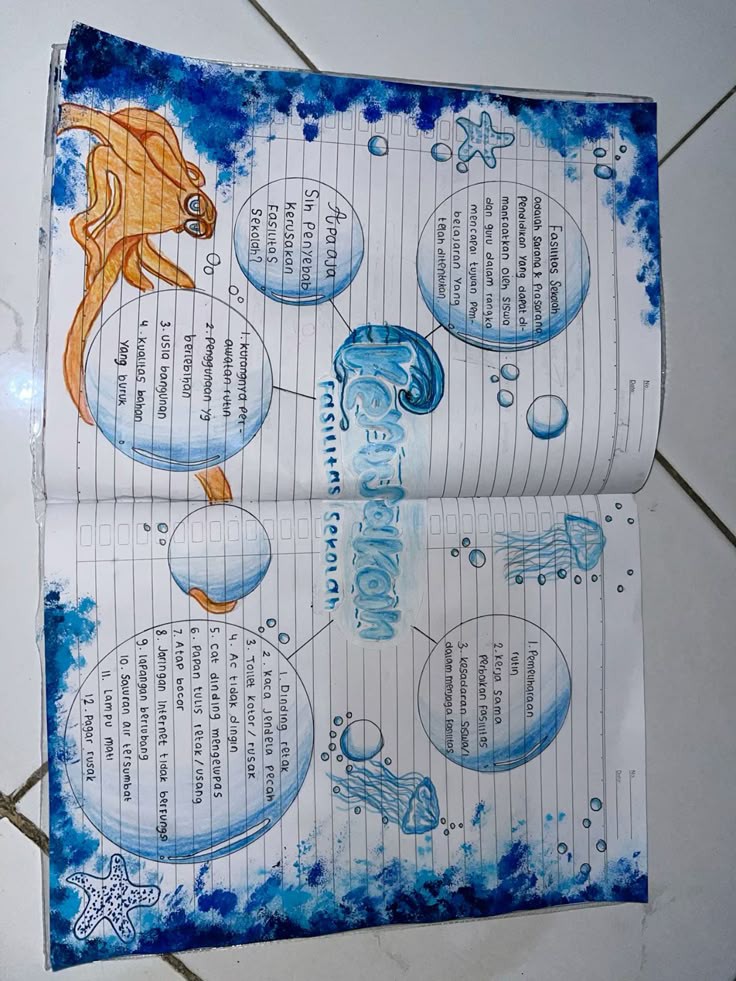 Kerusakan
Fasilitas Sekolah
Fasilitas Sekolah
adalah Sarana & Prasarana
Pendidikan yang dapat di-
manfaatkan oleh siswa
dan guru dalam rangka
mencapai tujuan Pem-
belajaran yang
telah ditentukan
Apa aja
Sih Penyebab
Kerusakan
Fasilitas
Sekolah?
1. Kurangnya Per-
awatan rutin
2. Penggunaan yg
berlebihan
3. Usia bangunan
4. Kualitas bahan
yang buruk
No.
Date.
1. Pemeliharaan
rutin
2. Kerja sama
Perbaikan Fasilitas
3. Kesadaran Siswa/i
dalam menjaga Fasilitas
1. Dinding retak
2. Kaca Jendela Pecah
3. Toilet Kotor / rusak
4. Ac tidak dingin
5. Cat dinding mengelupas
6. Papan tulis retak / usang
7. Atap bocor
8. Jaringan Internet tidak berfungsi
9. lapangan berlubang
10. Saluran air tersumbat
11. Lampu mati
12. Pagar rusak
No.
Date.